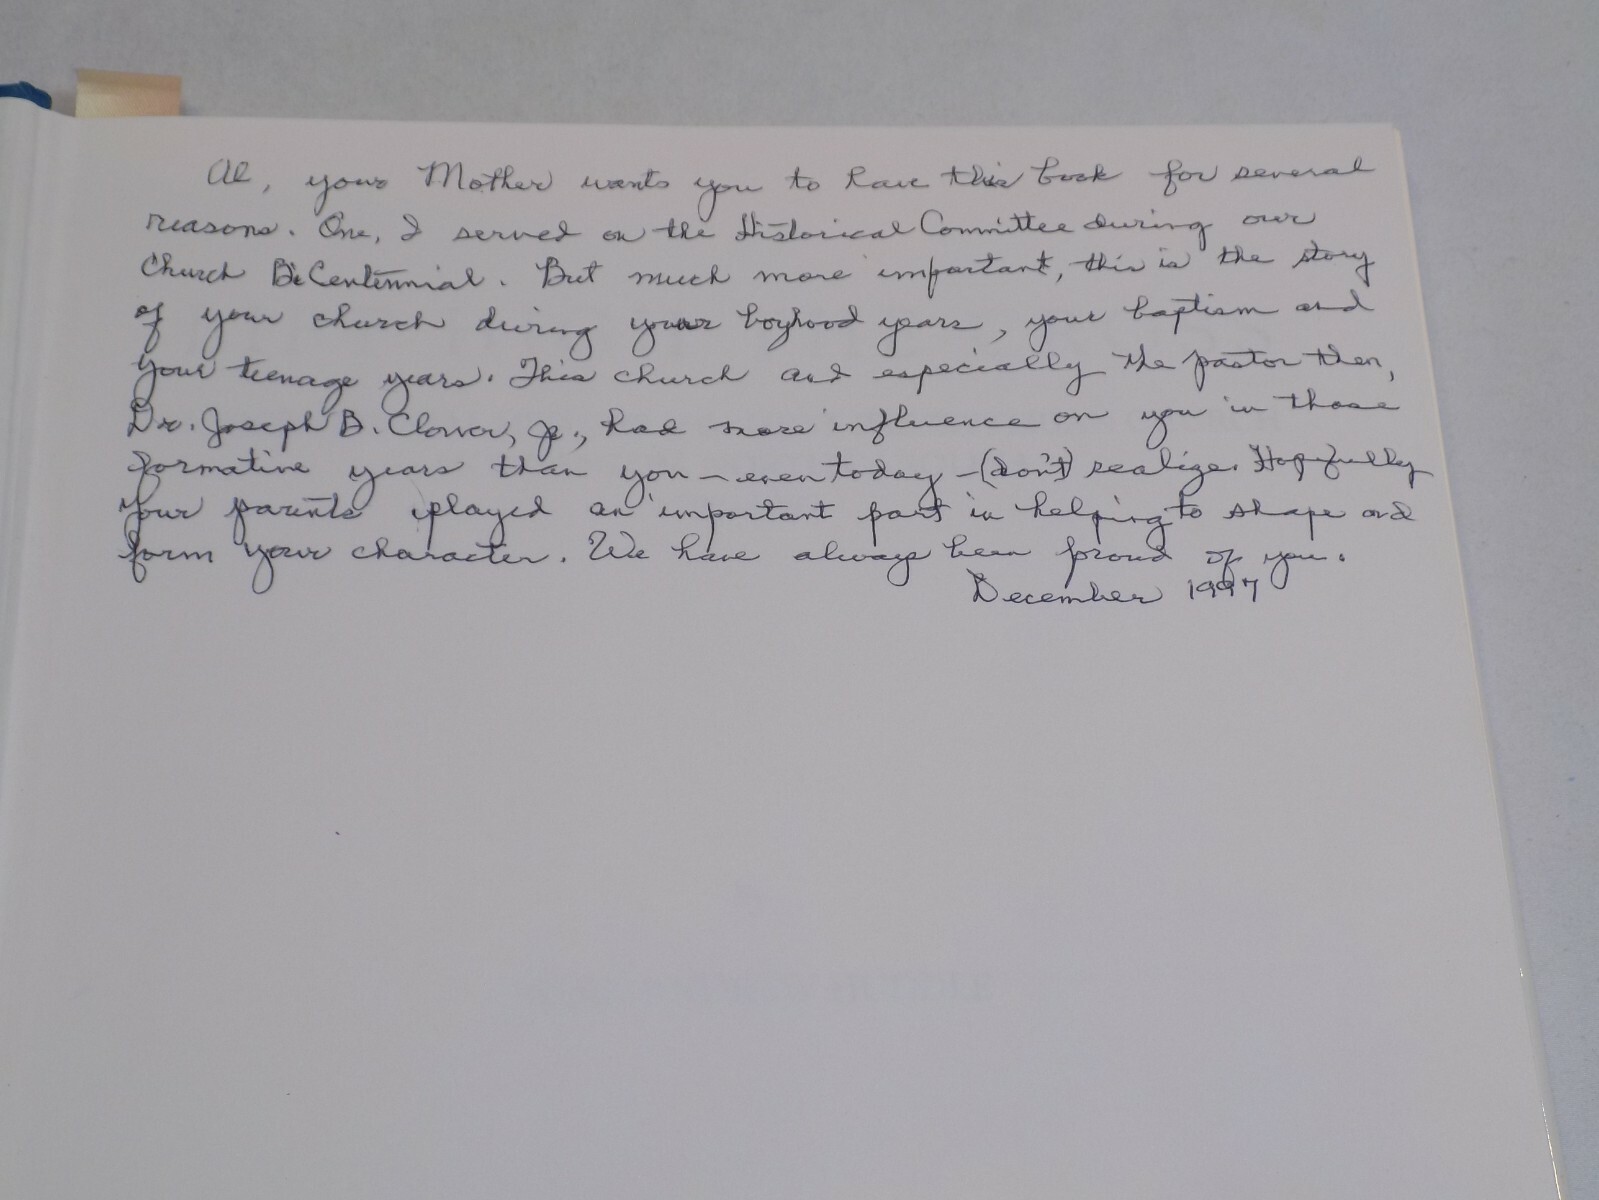 Al, your Mother wants you to have this book for several
reasons. One, I served on the Historical Committee during our
Church BiCentennial. But much more important, this is the story
of your church during your boyhood years, your baptism and
your teenage years. This church and especially the pastor then,
Dr. Joseph B. Clower, Jr., had more influence on you in those
formative years than you - even today - (don't) realize. Hopefully
your parents played an important part in helping to shape and
form your character. We have always been proud of you.
December 1997